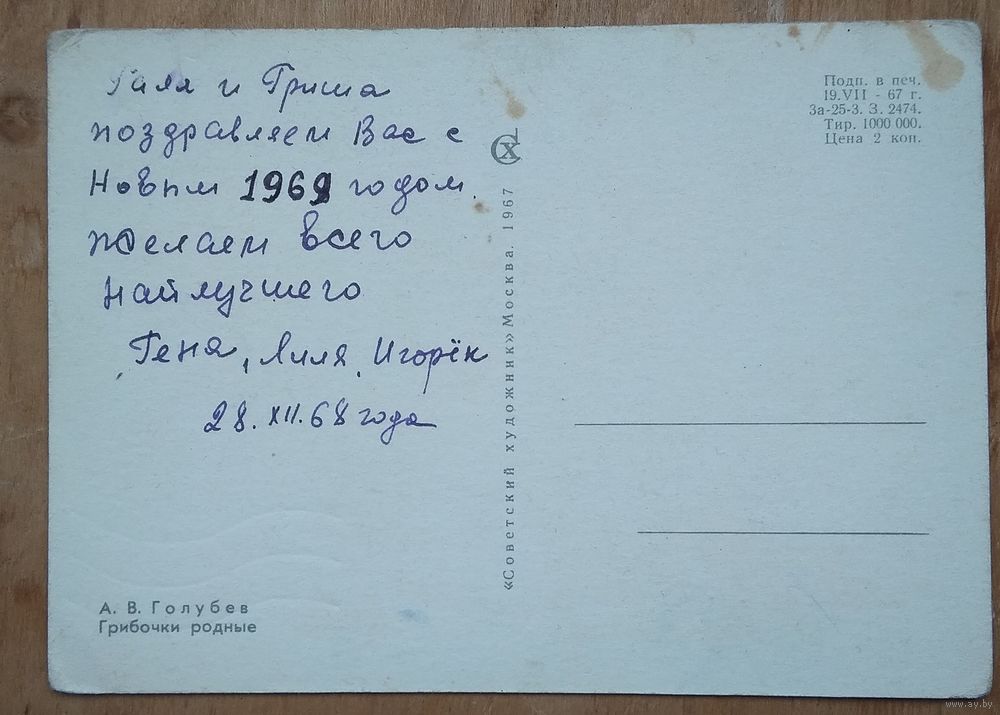 Галя и Гриша
поздравляем Вас с
Новым 1969 годом.
Желаем всего
наилучшего
Геня, Лиля, Игорёк
28.XII.68 года
А. В. Голубев
Грибочки родные
«Советский художник» Москва. 1967
СХ
Подп. в печ.
19.VII - 67 г.
За-25-3. З. 2474.
Тир. 1000 000.
Цена 2 коп.
www.ay.by